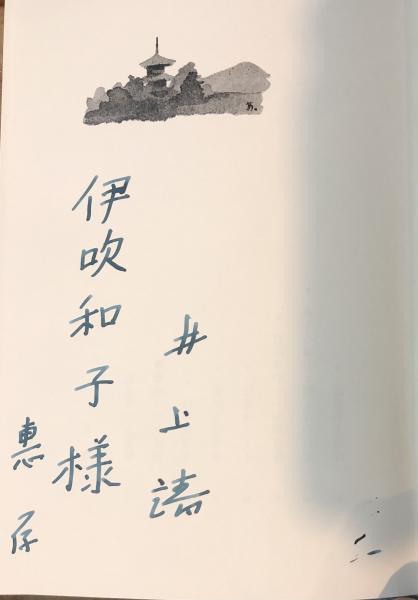 井上靖
伊吹和子様
惠存